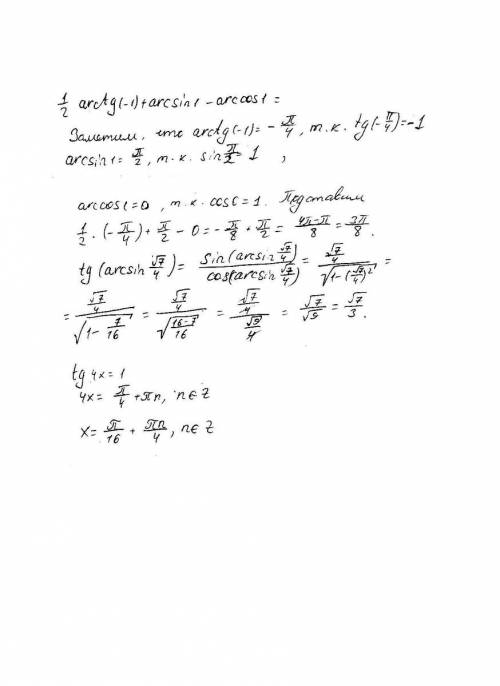 1/2 arctg(-1) + arcsin1 - arccos1 =
Заметим, что arctg(-1) = -π/4, т.к. tg(-π/4) = -1
arcsin1 = π/2, т.к. sin π/2 = 1 ,
arccos1 = 0, т.к. cos0 = 1. Подставим
1/2 · (-π/4) + π/2 - 0 = -π/8 + π/2 = (4π-π)/8 = 3π/8.
tg(arcsin √7/4) = sin(arcsin √7/4)/cos(arcsin √7/4) = (√7/4)/√(1-(√7/4)²) =
= (√7/4)/√(1-7/16) = (√7/4)/√((16-7)/16) = (√7/4)/(√9/4) = √7/√9 = √7/3.
tg 4x = 1
4x = π/4 + πn, n∈Z
x = π/16 + πn/4, n∈Z